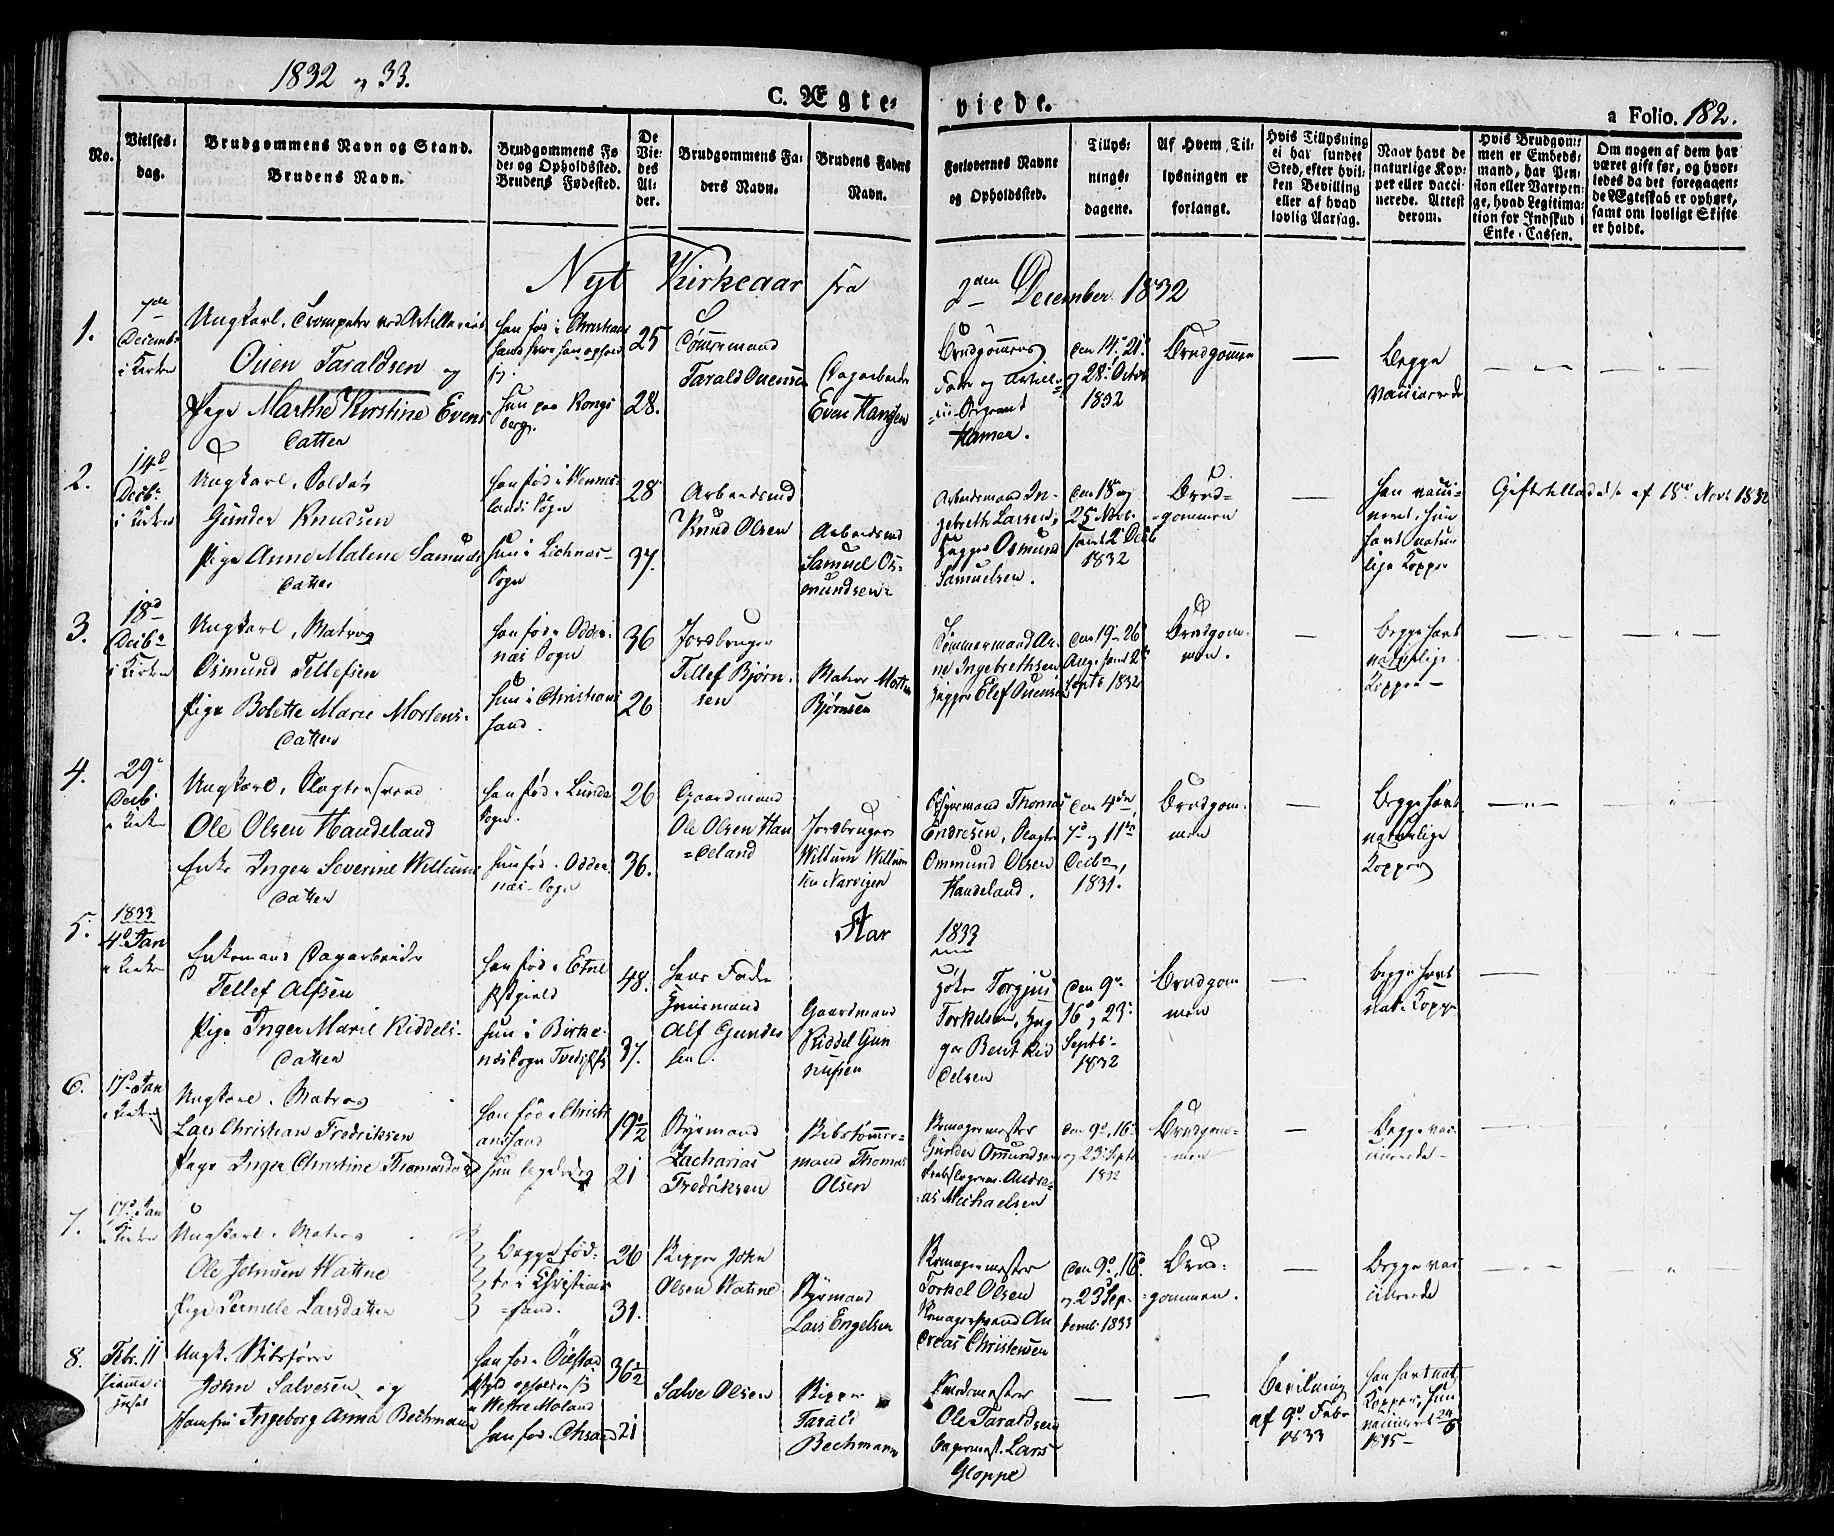 1832 og 33.
C. Ægte-
viede.
a Folio. 182.
No.
Vielses-
dag.
Brudgommens Navn og Stand.
Brudens Navn.
Brudgommens Fø
de- og Opholdssted.
Brudens Fødested.
De
Vie-
des
Al-
der.
Brudgommens Fa-
ders Navn.
Brudens Faders
Navn.
Forlovernes Navne
og Opholdssted.
Tillys-
nings-
dagene.
Af Hvem Til-
lysningen er
forlangt.
Hvis Tillysning
ei har fundet
Sted, efter hvil-
ken Bevilling
eller af hvad
lovlig Aarsag.
Naar havt de
naturlige Kop-
per eller vacci-
nerede. Attest
derom.
Hvis Brudgom-
men er Embeds-
mand, har Pen-
sion eller Vartpen-
ge, hvad Legitima-
tion for Indskud i
Enke-Cassen.
Om nogen af dem har
været gift før, og hvor-
ledes da det foregaaen-
de Ægteskab er ophørt,
samt om lovligt Skifte
er holdt.
Nyt Kirkeaar fra 2den December 1832
1.
7de
Decemb.
i Kirken
Ungkarl, Trompeter ved Artilleriet
Ouen Taraldsen og
Pige Marthe Kirstine Evens
datter
han fød i Christian
sand hvor han opholder
sig.
hun paa Kongs
berg.
25
28.
Tømmermand
Tarald Ouensen
Dagarbeider
Even Hansen
Brudgommens
Fader og Artille-
rie-Sergeant
Hamer.
den 14, 21
og 28 Octob
1832
Brudgommen
Begge
vaccinerede
2.
14d
Decbr
i Kirken
Ungkarl, Soldat
Gunder Knudsen
Pige Anne Malene Samuels
datter
han fød i Hennes-
lands Sogn
hun i Lichnes-
Sogn
28
37.
Arbeidsmd
Knud Olsen
Arbeidsmd
Samuel Os-
mundsen
Arbeidsmand In-
gebreth Larsen,
Osmund
Samuelsen.
den 18 og
25 Nov.
samt 2 Decb
1832
Brud-
gommen
han vacci-
neret, hun
havt natur
lige Kopper
Giftetilladelse af 18de Novb 1832
3.
18d
Decbr
i Kirken
Ungkarl, Matros
Osmund Tellefsen
Pige Bolette Marie Mortens-
datter
han fød i Odder-
næs Sogn
hun i Christian
sand.
36
26
Jordbruger
Tellef Bjørn-
sen
Matros Morten
Bjørnsen
Tømmermand Ar-
ne Ingebrethsen
Elef Ouensen
den 19, 26
Aug. samt 2
Septb 1832
Brudgom-
men.
begge havt
naturlige
Kopper
4.
29
Decb.
i Kirken
Ungkarl, Slagtersvend
Ole Olsen Handeland
Enke Ingen Severine Willums
datter
han fød i Lunde
Sogn.
hun fød i Odder
næs Sogn
26
36.
Gaardmand
Ole Olsen Han
deland
Jordbruger
Willum Willum
sen Narvigen
Styrmand Thomas
Endresen, Slagter
Ommund Olsen
Handeland.
den 4de,
7d og 11te
Decbr,
1831.
Brudgom-
men
begge havt
naturlige
Kopper
Aar 1833
5.
1833
4d Jan
i Kirken
Enkemand Dagarbeider
Tellef Alfsen
Pige Inger Marie Riddels-
datter
han fød i Etne
Præstgield
hun i Birke-
næs Sogn
48.
37.
hans Fader
Alf Gunder
sen.
Gaardmand
Riddel Gun
nufsen
Torgjus
Torkelsen,
Bent Rid
delsen
den 9d
16 og 23
Septb
1832
Brudgom
men
begge havt
nat. Kopper
6.
17d Jan
i Kirken
Ungkarl, Matros
Lars Christian Fredriksen
Pige Inger Christine Thomasdatter
han fød i Christi
ansand
hun ligeledes
19½
21
Styrmand
Zacharias
Fredriksen
Skibstømmer-
mand Thomas
Olsen
Skomagermester
Gunder Osmundsen
Andre-
as Michaelsen
den 9d, 16
og 23 Septb
1832
Brudgom-
men
Begge vac-
cinerede
7.
17d Jan
i Kirken
Ungkarl, Matros
Ole Johnsen Watne
Pige Pernille Larsdatter
Begge fød-
te i Christian
sand.
26
31.
Skipper John
Olsen Watne
Styrmand
Lars Engelsen
Skomagermester
Torkel Olsen
Skomagersvend An
dreas Christensen
den 9d, 16d
og 23 Sep-
temb. 1833
Brud-
gommen.
Begge vac
cinerede
8.
Febr. 11
hjemme i
Huset
Ungk. Skibsfører
John Salvesen og
Jomfru Ingeborg Anna Bechmann
han fød i Øiestad
i Westre Moland
hun fød i Chsand
36½
21
Salve Olsen
Skipper
Tarald
Bechmann
Ole Taraldsen
Bagermest. Lars
Gloppe
Bevilning
af 9d Febr
1833
han havt nat.
Kopper, hun
vaccineret 24/6
1815